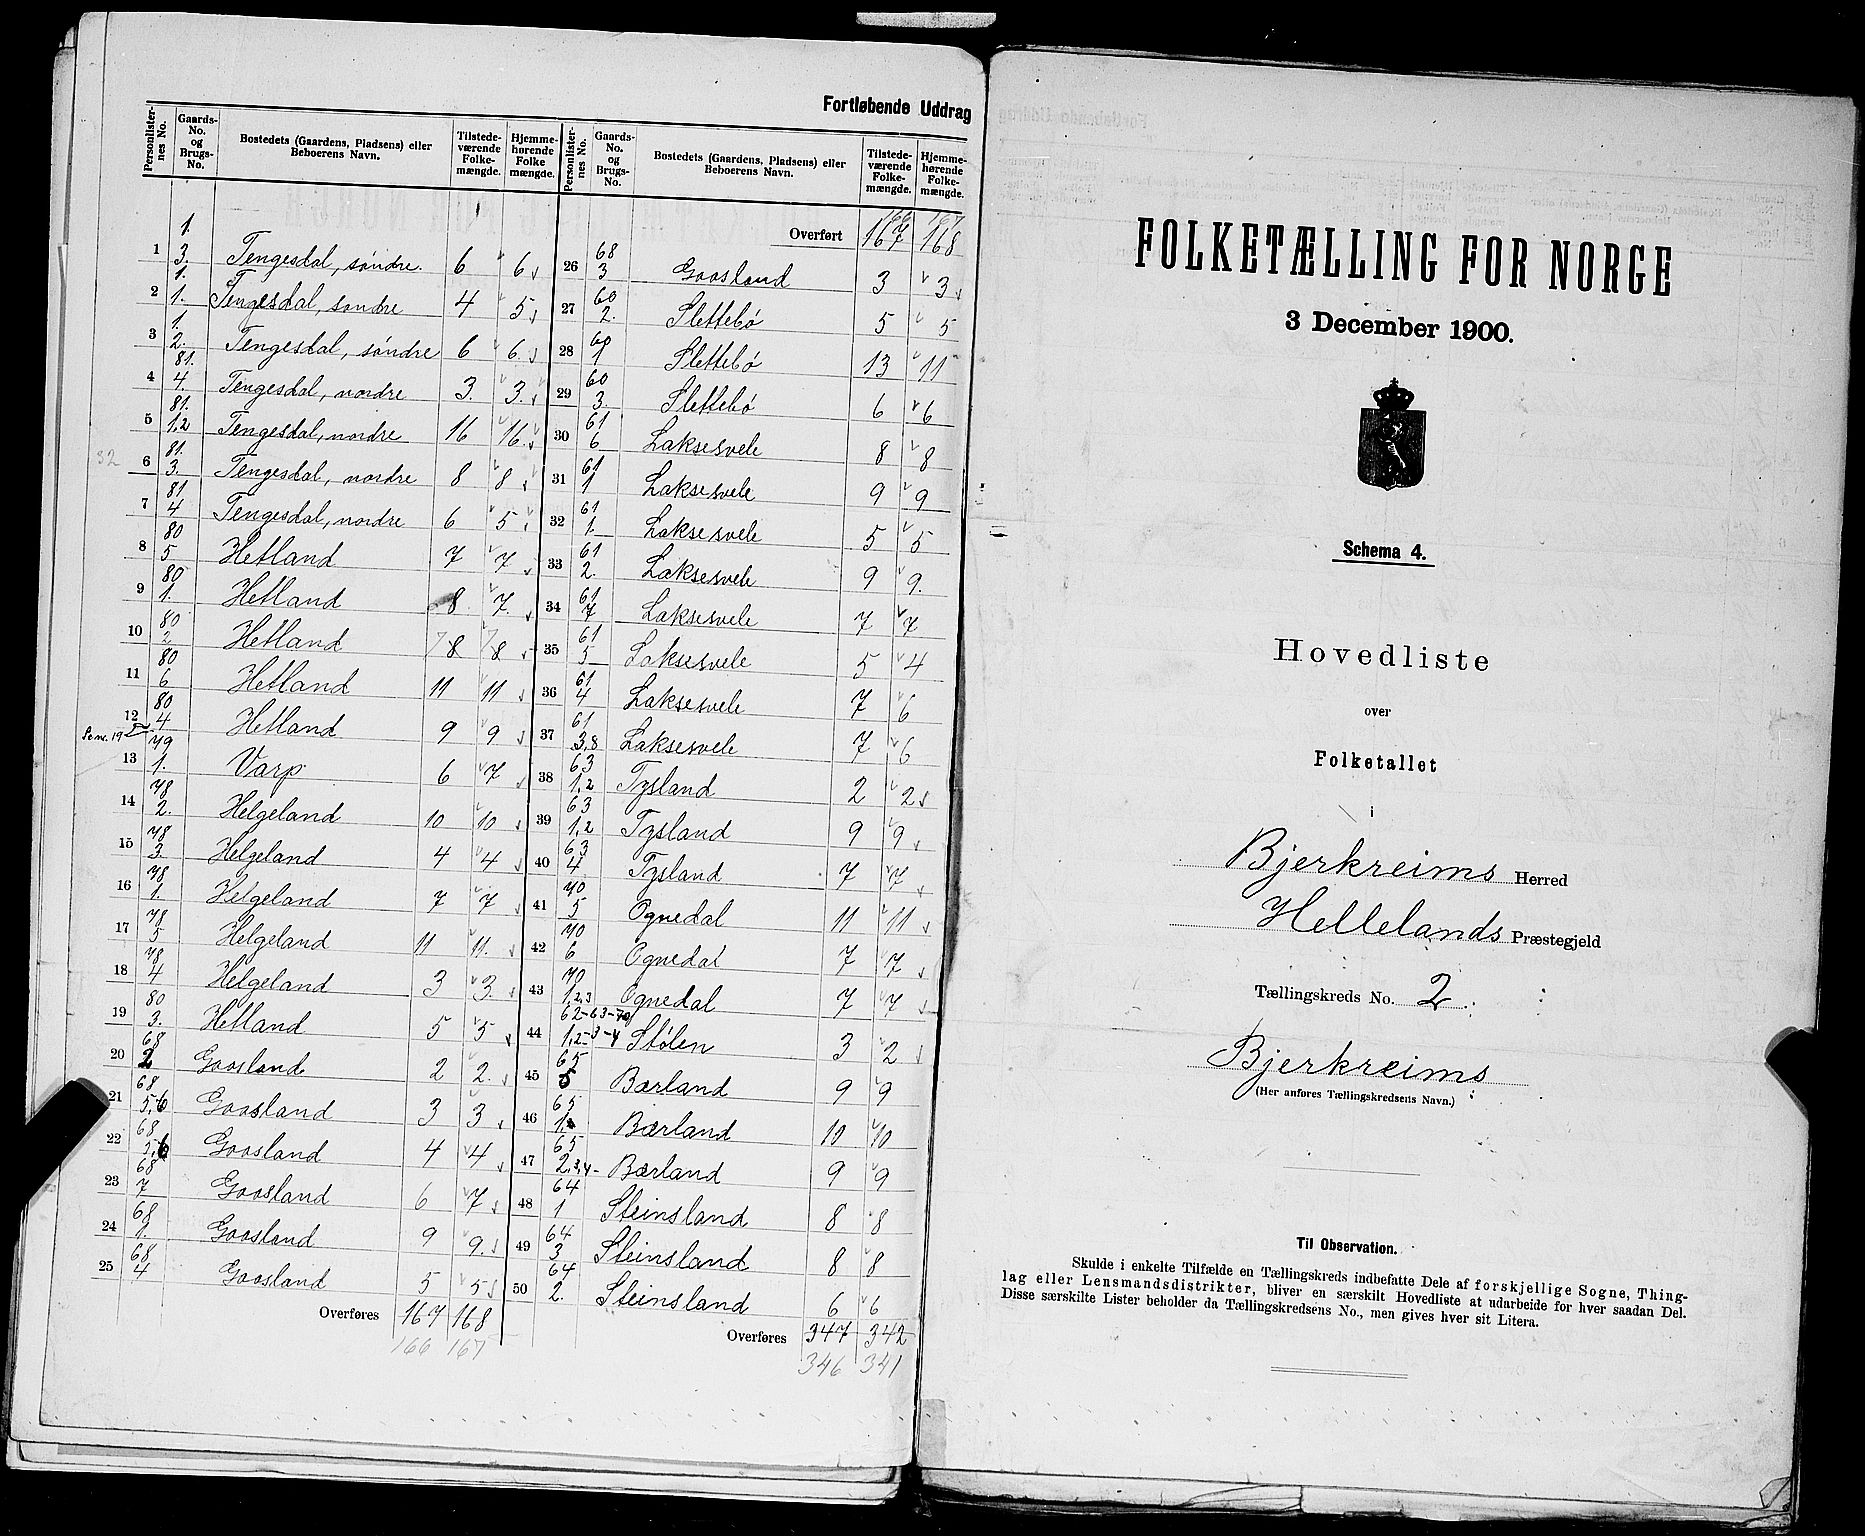 Fortløbende Uddrag
Personlister-nes No. | Gaards-No. og Brugs-No. | Bostedets (Gaardens, Pladsens) eller Beboerens Navn. | Tilstede-værende Folke-mængde. | Hjemme-hørende Folke mængde.
1 | 1. 3. | Tengesdal, søndre. | 6 | 6
2 | 1. 1. | Tengesdal, søndre | 4 | 5
3 | 1. 2. | Tengesdal, søndre | 6 | 6.
4 | 81. 4. | Tengesdal, nordre | 3. | 3.
5 | 81. 1,2 | Tengesdal, nordre | 16 | 16
32
6 | 81. 3. | Tengesdal, nordre | 8 | 8
7 | 81 4 | Tengesdal, nordre | 6 | 5
8 | 80 5 | Hetland | 7 | 7
9 | 80 1. | Hetland | 8. | 7.
10 | 80 2 | Hetland | 7 8 | 7 8
11 | 80 6 | Hetland | 11 | 11
12 | 80 4 | Hetland | 9 | 9
13 | 79 1. | Varp | 6 | 7
14 | 78 2. | Helgeland | 10 | 10
15 | 78 3. | Helgeland | 4 | 4
16 | 78 1. | Helgeland | 7 | 7
17 | 78 5 | Helgeland | 11 | 11.
18 | 78 4 | Helgeland | 3 | 3.
19 | 80 3. | Hetland | 5 | 5
20 | 68 2 | Gaasland | 2 | 2.
21 | 68 5,6 | Gaasland | 3 | 3
22 | 68 5,6 | Gaasland | 4 | 4
23 | 68 7 | Gaasland | 6 | 7
24 | 68 1. | Gaasland | 9 | 9.
25 | 68 4 | Gaasland | 5 | 5
Overføres 167 168
166 167
Personlister-nes No. | Gaards-No. og Brugs-No. | Bostedets (Gaardens, Pladsens) eller Beboerens Navn. | Tilstede-værende Folke-mængde. | Hjemme-hørende Folke-mængde.
166 167
Overført 167 168
26 | 68 3 | Gaasland | 3 | 3
27 | 60 2. | Slettebø | 5 | 5
28 | 60 1 | Slettebø | 13 | 11
29 | 60 3. | Slettebø | 6 | 6
30 | 61 6 | Laksesvele | 8 | 8
31 | 61 1 | Laksesvele | 9 | 9
32 | 61 1. | Laksesvele | 5 | 5
33 | 61 2. | Laksesvele | 9 | 9.
34 | 61 7 | Laksesvele | 7 | 7
35 | 61 5 | Laksesvele | 5 | 4
36 | 61 4 | Laksesvele | 7 | 6
37 | 61 3,8 | Laksesvele | 7 | 6
38 | 63 1,2 | Tysland | 2 | 2
39 | 63 1,2 | Tysland | 9 | 9
40 | 63 4. | Tysland | 7 | 7
41 | 70 5 | Ognedal | 11 | 11
42 | 70 6 | Ognedal | 7 | 7
43 | 70 1,2,3 | Ognedal | 7 | 7
44 | 62-63-70 1,2-3-4 | Stølen | 3 | 2
45 | 65 5 | Bærland | 9 | 9
46 | 65 1. | Bærland | 10 | 10
47 | 65 2,3,4 | Bærland | 9 | 9
48 | 64 1 | Steinsland | 8 | 8
49 | 64 3 | Steinsland | 8 | 8
50 | 64 2. | Steinsland | 6 | 6
Overføres 347 342
346 341
FOLKETÆLLING FOR NORGE
3 December 1900.
Schema 4.
Hovedliste
over
Folketallet
i
Bjerkreims Herred
Hellelands Præstegjeld
Tællingskreds No. 2.
Bjerkreims
(Her anføres Tællingskredsens Navn.)
Til Observation.
Skulde i enkelte Tilfælde en Tællingskreds indbefatte Dele af forskjellige Sogne, Thing-
lag eller Lensmandsdistrikter, bliver en særskilt Hovedliste at udarbeide for hver saadan Del.
Disse særskilte Lister beholder da Tællingskredsens No., men gives hver sit Litera.